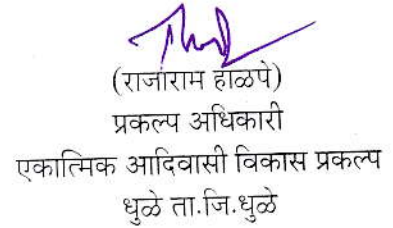 (राजाराम हाळपे)
प्रकल्प अधिकारी
एकात्मिक आदिवासी विकास प्रकल्प
धुळे ता.जि.धुळे